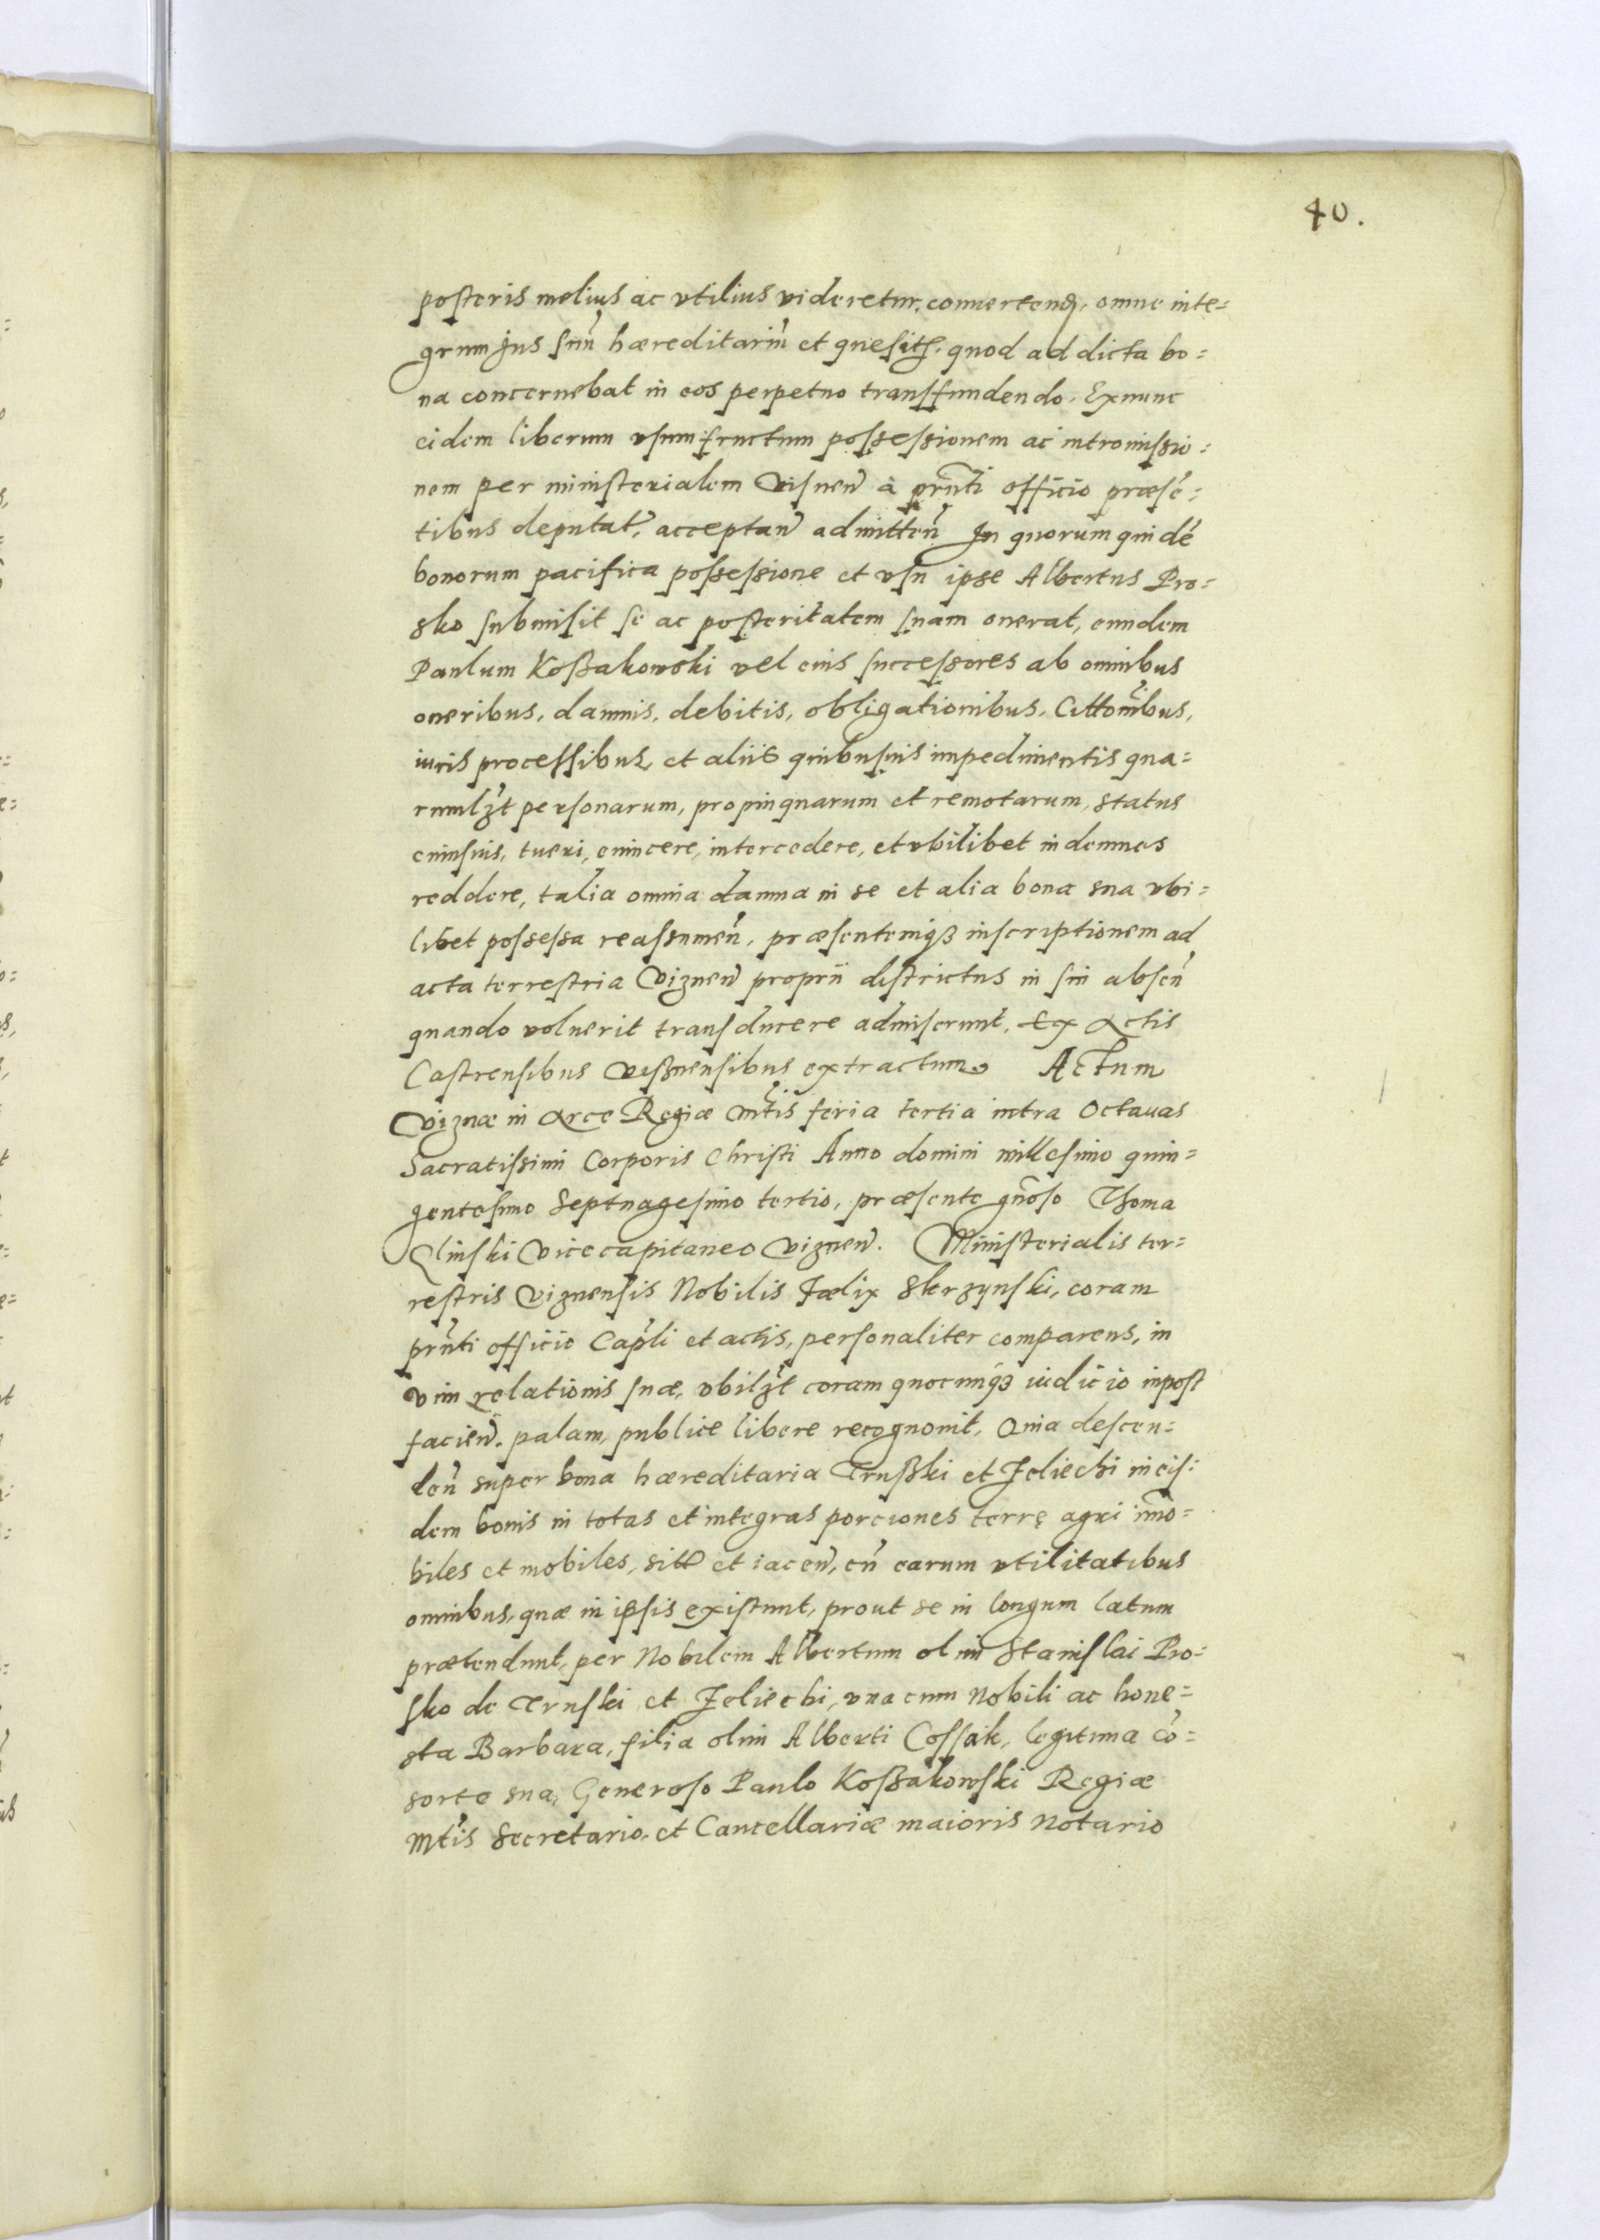 40.
posteris melius ac vtilius videretur, conuertend, omne inte=
grum Jus suũ hæreditariũ et quesitũ, quod ad dicta bo=
na concernebat in eos perpetuo transfundendo. Ex nunc
eidem liberum vsumfructum possessionem ac intromissio=
nem per ministerialem Visnen̄ à prñti officio præsẽ=
tibus deputat̃, acceptan̄ admitten̄ In quorum quidẽ
bonorum pacifica possessione et vsu ipse Albertus Pro=
sko submisit se ac posteritatem suam onerat, eundem
Paulum Koßakowski vel eius successores ab omnibus
oneribus, damnis, debitis, obligationibus, Cittoñibus,
iuris processibus, et aliis quibusuis impedimentis qua=
rumlʒt personarum, propinquarum et remotarum, status
cuiusuis, tueri, euincere, intercedere, et vbilibet indemnes
reddere, talia omnia damna in se et alia bona sua vbi=
libet possessa reassumen̄, præsentemqʒ inscriptionem ad
acta terrestria Viznen̄ proprii districtus in sui absen̄
quando voluerit transducere admiserunt. Ex Actis
Castrensibus Vißnensibus extractum. Actum
Viznæ in Arce Regiæ Mt̃is feria tertia intra Octauas
Sacratissimi Corporis Christi Anno domini millesimo quin=
gentesimo Septuagesimo tertio, præsente gñoso Thoma
Glinski Vicecapitaneo Viznen̄. Ministerialis ter=
restris Viznensis Nobilis Fælix Skrzynski, coram
prñti officio Cap̃li et actis, personaliter comparens, in
vim relationis suæ, vbilʒt coram quocunqʒ iudicio inpost
facien̄. palam, publice libere recognouit, Quia descen=
den̄ super bona hæreditaria Trußki et Jeliechi in eis=
dem bonis in totas et integras porciones terrę agri im̃o=
biles et mobiles, sitt̃ et iacen̄, cũ earum vtilitatibus
omnibus, quæ in ipsis existunt, prout se in longum latum
prætendunt, per Nobilem Albertum olim Stanislai Pro=
sko de Truski et Jeliechi, vna cum Nobili ac hone=
sta Barbara, filia olim Alberti Cossak, legitima cõ=
sorte sua, Generoso Paulo Koßakowski Regiæ
Mt̃is Secretario, et Cancellariæ maioris Notario